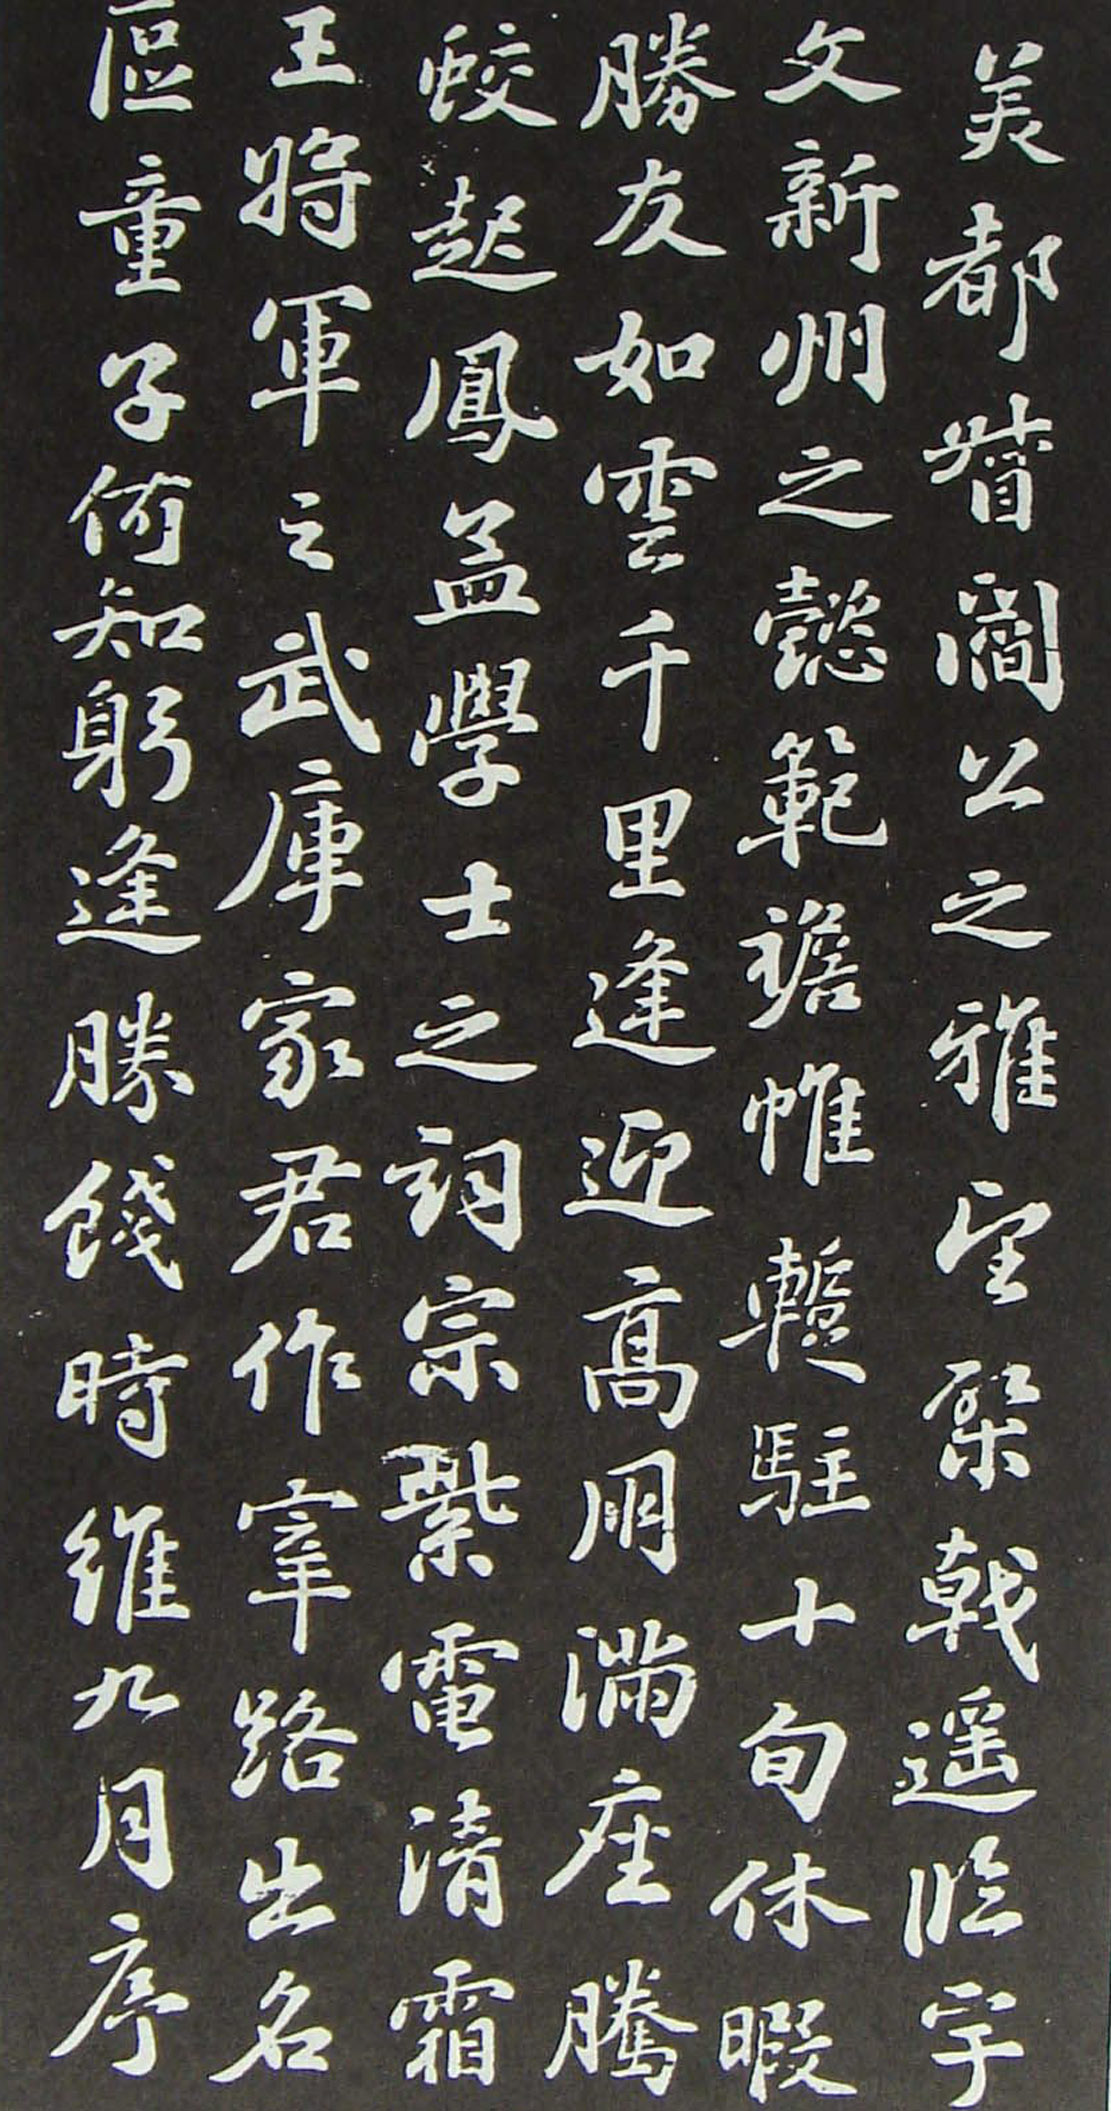 美都督閻公之雅望棨戟遥臨宇
文新州之懿範襜帷暫駐十旬休暇
勝友如雲千里逢迎高朋滿座騰
蛟起鳳孟學士之詞宗紫電清霜
王將軍之武庫家君作宰路出名
區童子何知躬逢勝餞時維九月序